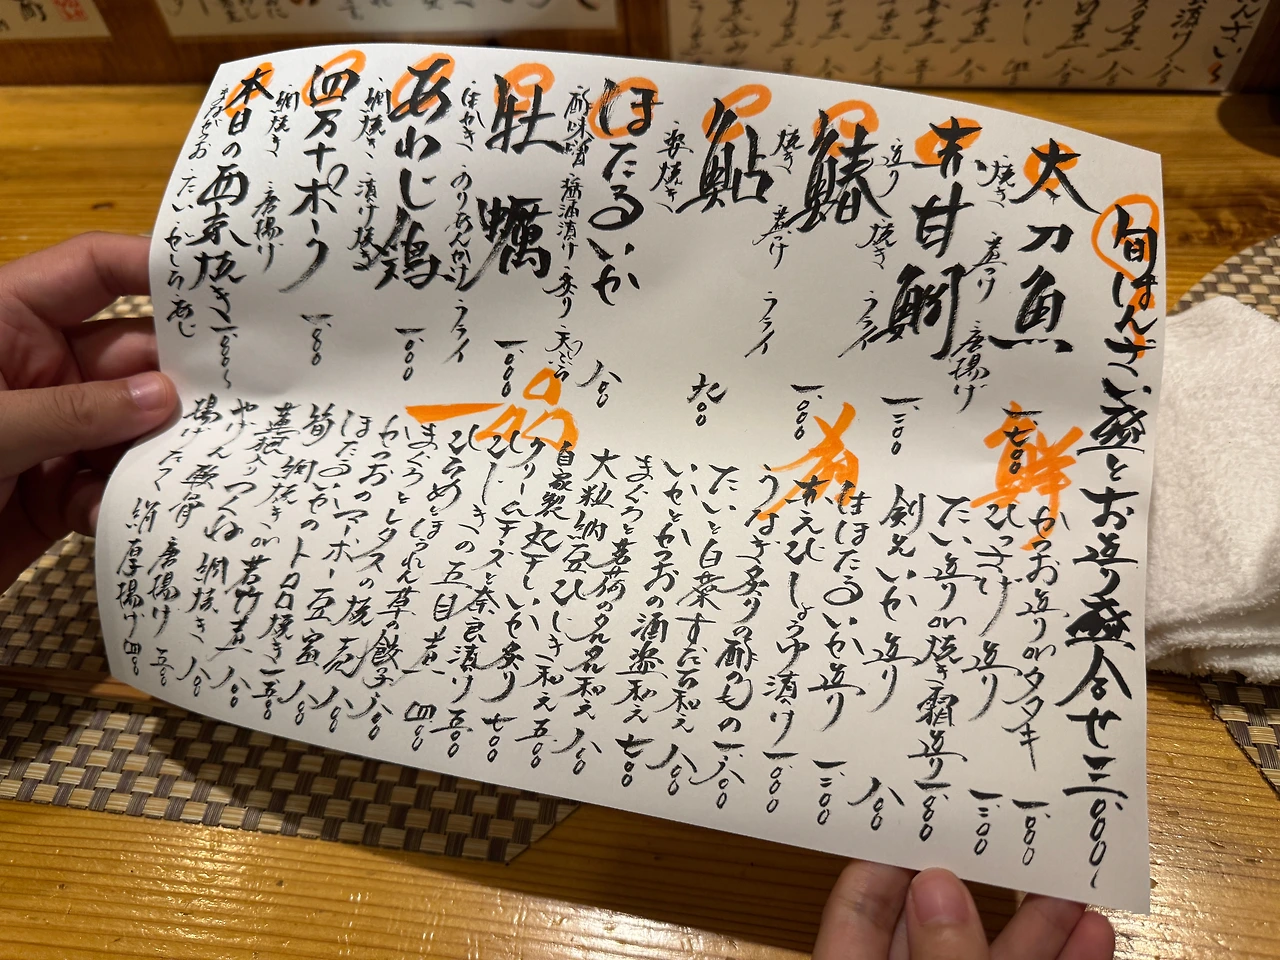 旬ばんざい盛とお造り盛合せ 三、000〜
太刀魚
焼き 煮つけ 唐揚げ
一、七00
赤甘鯛
造り 焼き フライ
一、三00
鰆
焼き 煮つけ フライ
一、000
鮎
姿焼き
九00
ほたるいか
酢味噌 醤油漬け 炙り 天ぷら
八00
牡蠣
ほやき のりあんかけ フライ
一、000
あわじ鶏
網焼き 漬け焼き
一、00
四万十ポーク
網焼き 唐揚げ
一、00
本日の西京焼き 一、000〜
まながつお たい かしら あじ
鮮
かつお造りorタタキ 一、00
ひっさげ造り 一、三00
たい造りor焼き霜造り 一、00
剣先いか造り 八00
ほたるいか造り 一、三00
肴
赤えび しょうゆ漬け 一、000
うなぎ炙りの酢のもの 一、八00
たいと白菜すだち和え 八00
いかとかつおの酒盗和え 七00
まぐろと茗荷のぬた和え 八00
大粒納豆ひじき和え 五00
自家製丸干しいか炙り 七00
クリームチーズと奈良漬け 五00
ひじきの五目煮 四00
一品
ひらめとほうれん草の餃子 八00
まぐろとレタスの焼売 八00
かつおのマーボー豆富 八00
ほたるいかのトロロ焼き 一、五00
筍 網焼きor若竹煮 一、八00
蓮根入りつくね 網焼き 八00
やげん軟骨 唐揚げ 五00
揚げたて 絹厚揚げ 四00